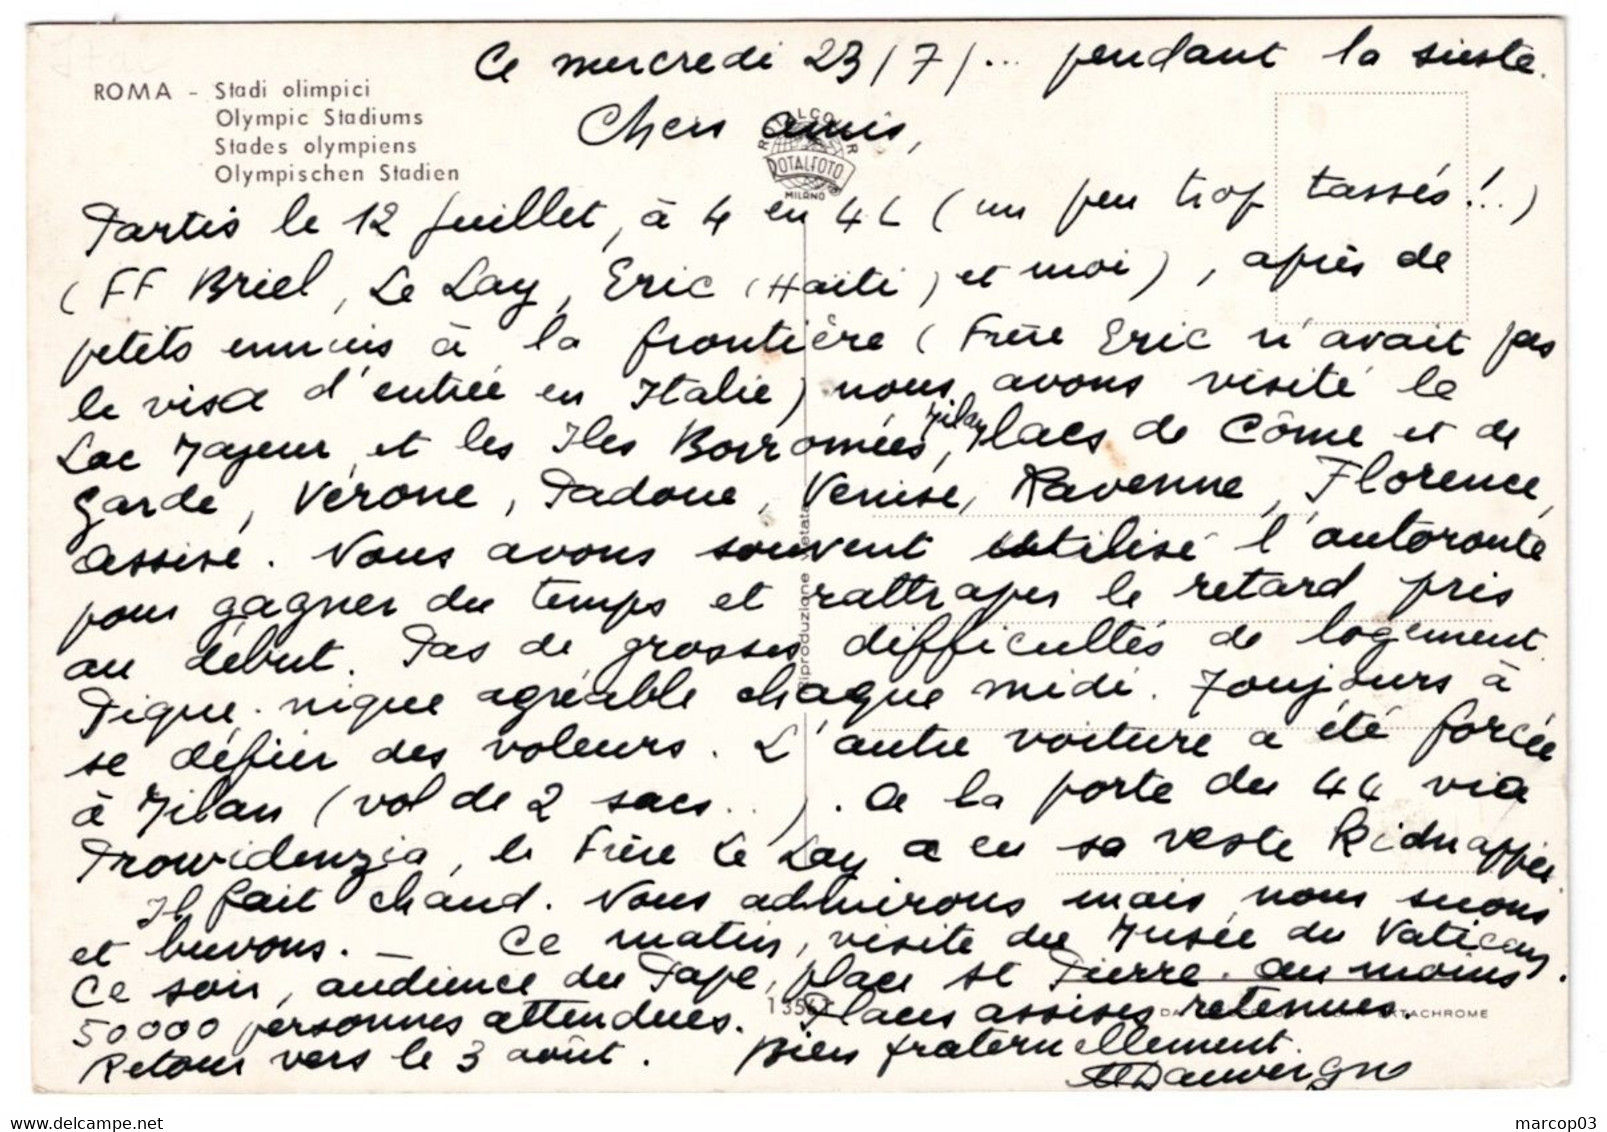 Ital
Ce mercredi 23/7/... pendant la sieste.
ROMA - Stadi olimpici
Olympic Stadiums
Stades olympiens
Olympischen Stadien
ROTALCOLOR
ROTALFOTO
MILANO
Chers amis,
Partis le 12 Juillet, à 4 en 4L (un peu trop tassés!..)
(FF Briel, Le Lay, Eric (Haïti) et moi), après de
petits ennuis à la frontière (Frère Eric n'avait pas
le visa d'entrée en Italie) nous avons visité le
Lac Majeur et les Iles Borromées, Milan, lacs de Côme et de
Garde, Vérone, Padoue, Venise, Ravenne, Florence,
Assise. Nous avons souvent utilisé l'autoroute
pour gagner du temps et rattraper le retard pris
au début. Pas de grosses difficultés de logement.
Pique-nique agréable chaque midi. Toujours à
se défier des voleurs. L'autre voiture a été forcée
à Milan (vol de 2 sacs...). A la porte du 44 via
Prowidenzia, le Frère Le Lay a eu sa veste Kidnappée
Il fait chaud. Nous admirons mais nous suons
et buvons. — Ce matin, visite du Musée du Vatican.
Ce soir, audience du Pape, place St Pierre. au moins
50000 personnes attendues. Places assises retenues.
Retour vers le 3 août. Bien fraternellement.
Dauvergne
Riproduzione vietata
135
EKTACHROME
marcop03